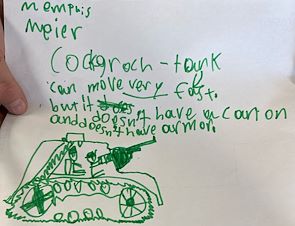 Mempuis
Meier
Cockgroch-tank
can move very fast.
but it doesn't have a canon
and doesn't have armor.